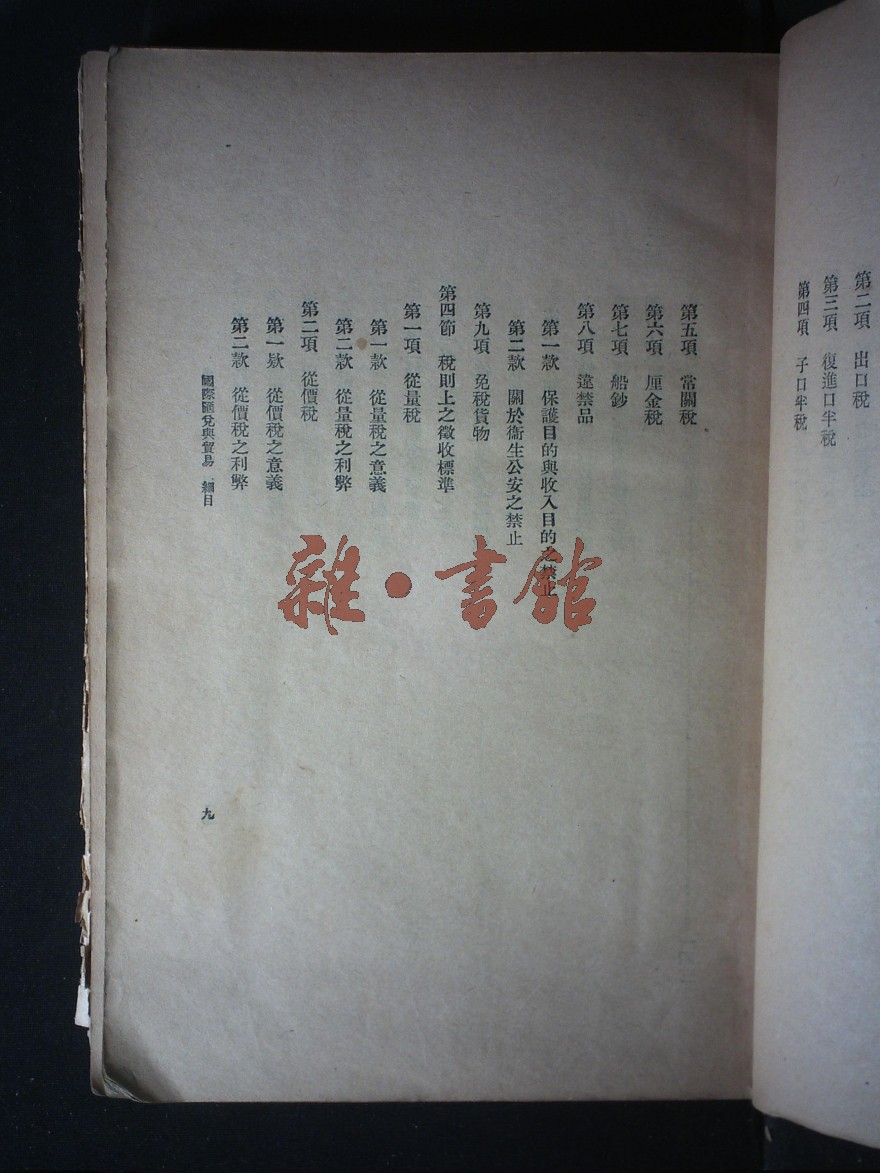 第二項　出口稅
第三項　復進口半稅
第四項　子口半稅
第五項　常關稅
第六項　厘金稅
第七項　船鈔
第八項　違禁品
第一款　保護目的與收入目的之禁止
第二款　關於衞生公安之禁止
第九項　免稅貨物
第四節　稅則上之徵收標準
第一項　從量稅
第一款　從量稅之意義
第二款　從量稅之利弊
第二項　從價稅
第一欵　從價稅之意義
第二款　從價稅之利弊
國際匯兌與貿易　細目
九
雜·書館